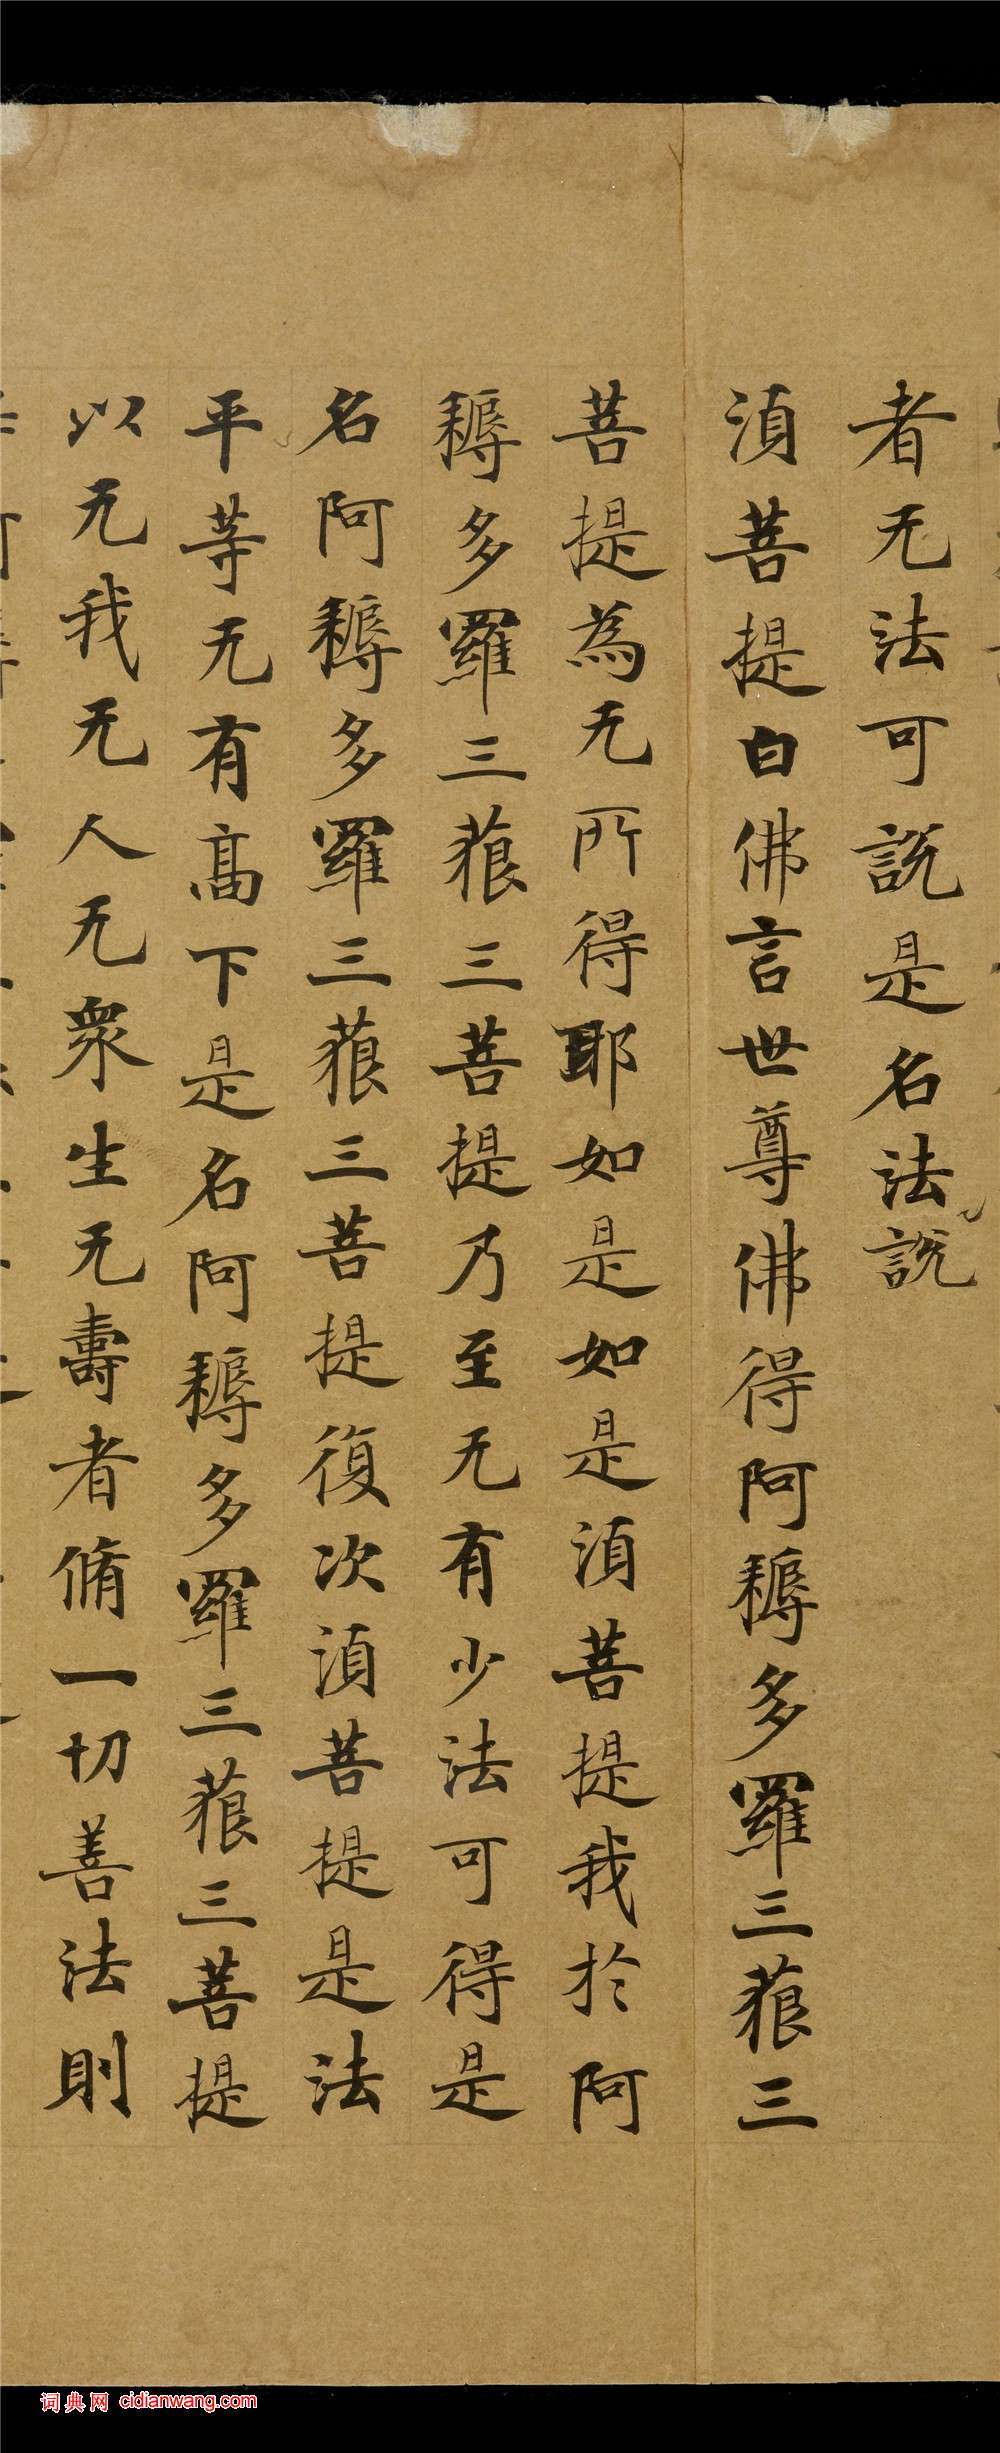 者无法可說是名法說
湏菩提白佛言世尊佛得阿耨多羅三藐三
菩提為无所得耶如是如是湏菩提我於阿
耨多羅三藐三菩提乃至无有少法可得是
名阿耨多羅三藐三菩提復次湏菩提是法
平等无有髙下是名阿耨多羅三藐三菩提
以无我无人无衆生无壽者脩一切善法則
词典网 cidianwang.com